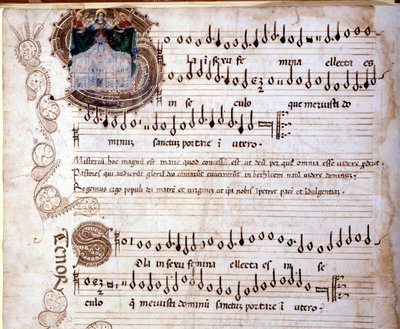 la i sexu fe mina ellecta es
in se culo que meruisti do
minum sanctus portare ī utero.
Misteriū hoc magnū est marie quod concessū est ut deū per quē omnia esse videre
Pastores qui audierūt gloriā deo in bethleem natū videre dominū.
Rogemus ergo populi dei matrē et virginē ut ipsa nobis īpetret pacē et Indulgentiā.
Tenor
Ola in sexu femina ellecta es in se
culo q meruisti dominū sanctus portare ī utero.